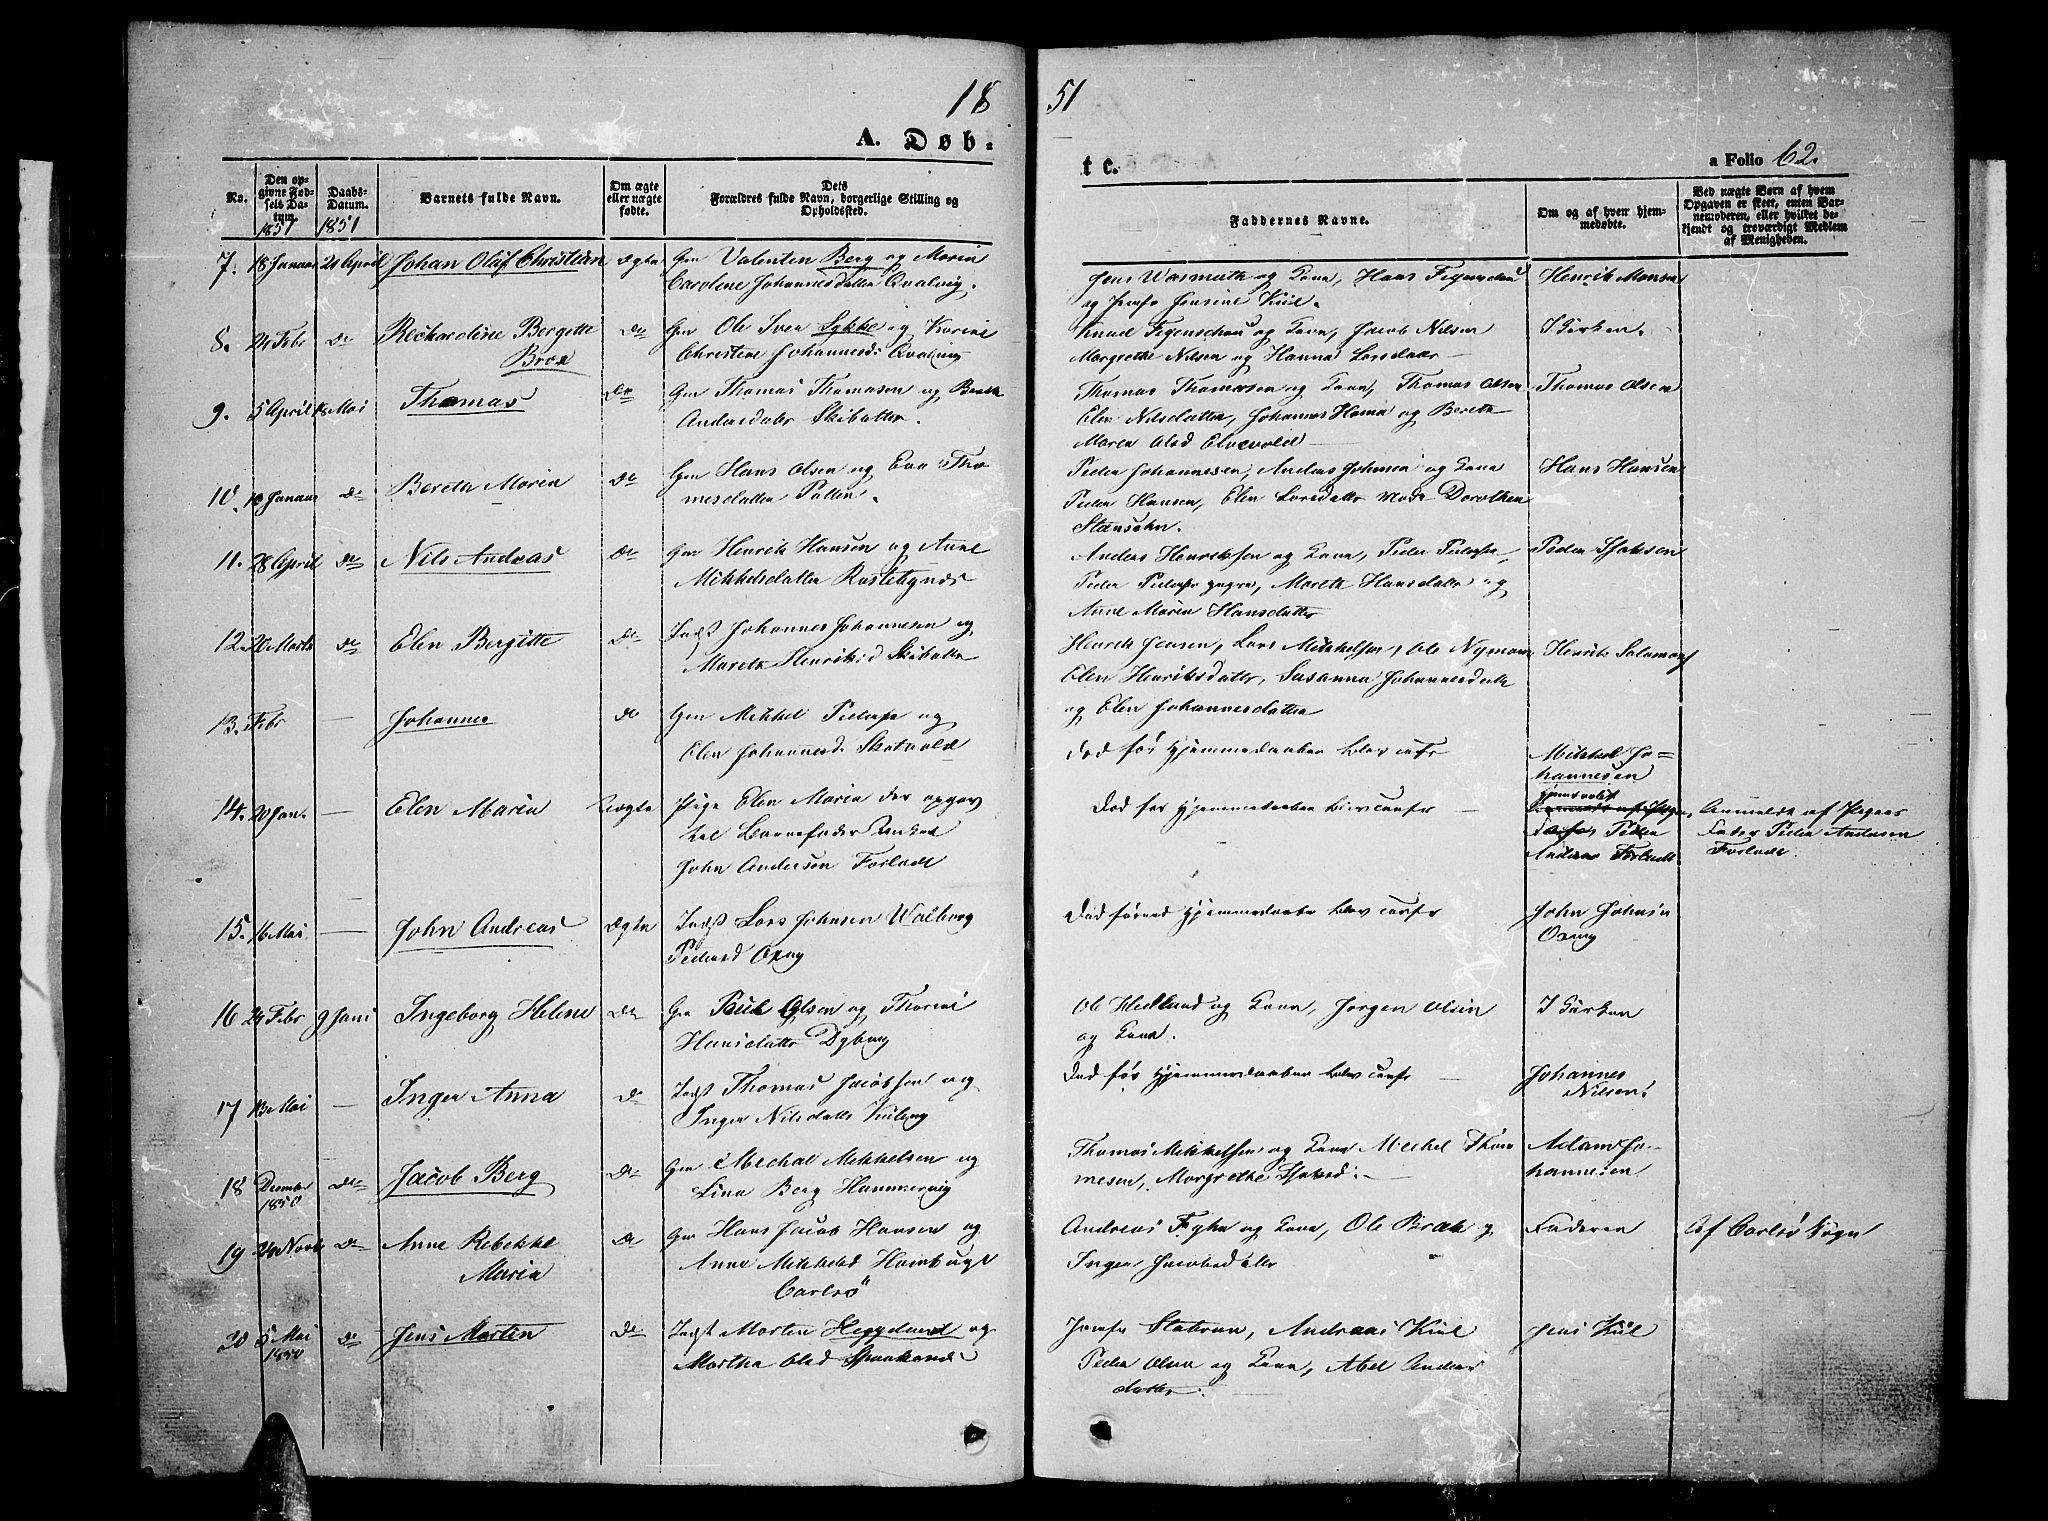 18 51
A. Døb.
t c.
a Folio 62.
No.
Den opgivne Fødsels Datum.
1851
Daabs-Datum.
1851
Barnets fulde Navn.
Om ægte eller uægte fødte.
Dets Forældres fulde Navn, borgerlige Stilling og Opholdssted.
Faddernes Navne.
Om og af hvem hjemmedøbte.
Ved uægte Børn af hvem Opgaven er skeet, enten Barnemoderen, eller hvilket bekjendt og troværdigt Medlem af Menigheden.
7. 18 Januar 21 April Johan Oluf Christian Ægte Gm Valentin Berg og Maria
Caroline Johannesdatter Qvalvig.
Jens Wasmuth og Kone, Hans Figenschau
og Jomfr Jensine Kiil.
Henrik Monsen
8. 24 Febr do Richardine Bergitte
Brox
do Gm Ole Iver Lykke og Karine
Christine Johannesd: Qvalvig
Knud Figenschau og Kone, Jacob Nilsen
Margrethe Nilsen og Hanna Larsdatter
I Kirken.
9. 5 April 18 Mai Thomas do Gm Thomas Thomasen og Berith
Andersdatter Skibotten.
Thomas Thomassen og Kone, Thomas Olsen
Elen Nilsdatter, Johannes og Bereth
Maren Olsd Elvevold
Thomas Olsen
10. Januar do Bereth Maria do Gm Hans Olsen og Eva Tho
masdatter Pollen.
Peder Johannesen, Anders Johnsen og Kone
Peder Hansen, Elen Larsdatter Dorothea
Hans Hansen
11. 28 April do Nils Andreas do Gm Henrik Hansen og Anne
Mikkelsdatter
Anders Henriksen og Kone, Peder Peders,
Peder Peders yngre, Mareth Hansdatter og
Anne Maria Hansdatter
Peder Isaksen
12. 20 Marts do Elen Bergitte do Indst Johannes Johannesen og
Mareth Henriksd Skibotten
Henrik Jensen, Lars Mikkelsen, Ole Nymann
Elen Henriksdatter, Susanna Johannesdatter
og Elen Johannesdatter
Henrik Salamons
13. Febr — Johannes do Gm Mikkel Peders og
Elen Johannesd. Skatvold
død før Hjemmedaaben blev conf
Mikkel Jo=
hannesen
14. 20 Jan. — Elen Maria Uægte Pige Elen Maria der opgav
til Barnefader Enkem
John Andersen Forladt
Død før Hjemmedaaben blev conf
Peder
Anders Forladt
Anmeldt af Pigens
Fader Peder Andersen
Forladt.
15. 16 Mai — John Andreas Ægte Indst Lars Johnsen Walborg
Pedersd Oxvig
Død førend Hjemmedaaben blev conf
John Johnsen
Oxvig
16 24 Febr 9 Juni Ingeborg Helene do Gm Paul Olsen og Thorine
Hansdatter Dybvig
Ole Hedlund og Kone, Jørgen Olsen
og Kone.
I Kirken
17 13 Mai — Inger Anna do Indst Thomas Jacobsen og
Inger Nilsdatter Kilvig
Død før Hjemmedaaben blev conf
Johannes
Nilsen
18 December
1850
do Jacob Berg do Gm Mechal Mikkelsen og
Lina Berg Hammervig
Thomas Mikkelsen og Kone Mechel Thom
mesen, Margrethe Isaksd:
Adam Jo-
hannesen
19 24 Novb do Anne Rebekke
Maria
do Gm Hans Jacob Hansen og
Anne Mikkelsd
Carlsö
Andreas og Kone, Ole Bræk g
Inger Jacobsdatter
Faderen
Af Carlsö Sogn
20 5 Mai
1850
do Jens Martin do Indst Morten Heggelund og
Martha Olsd Spaakenes
Jomfr, Andreas Kiil
Peder Olsen og Kone, Abel Anders
datter.
Jens Kiil